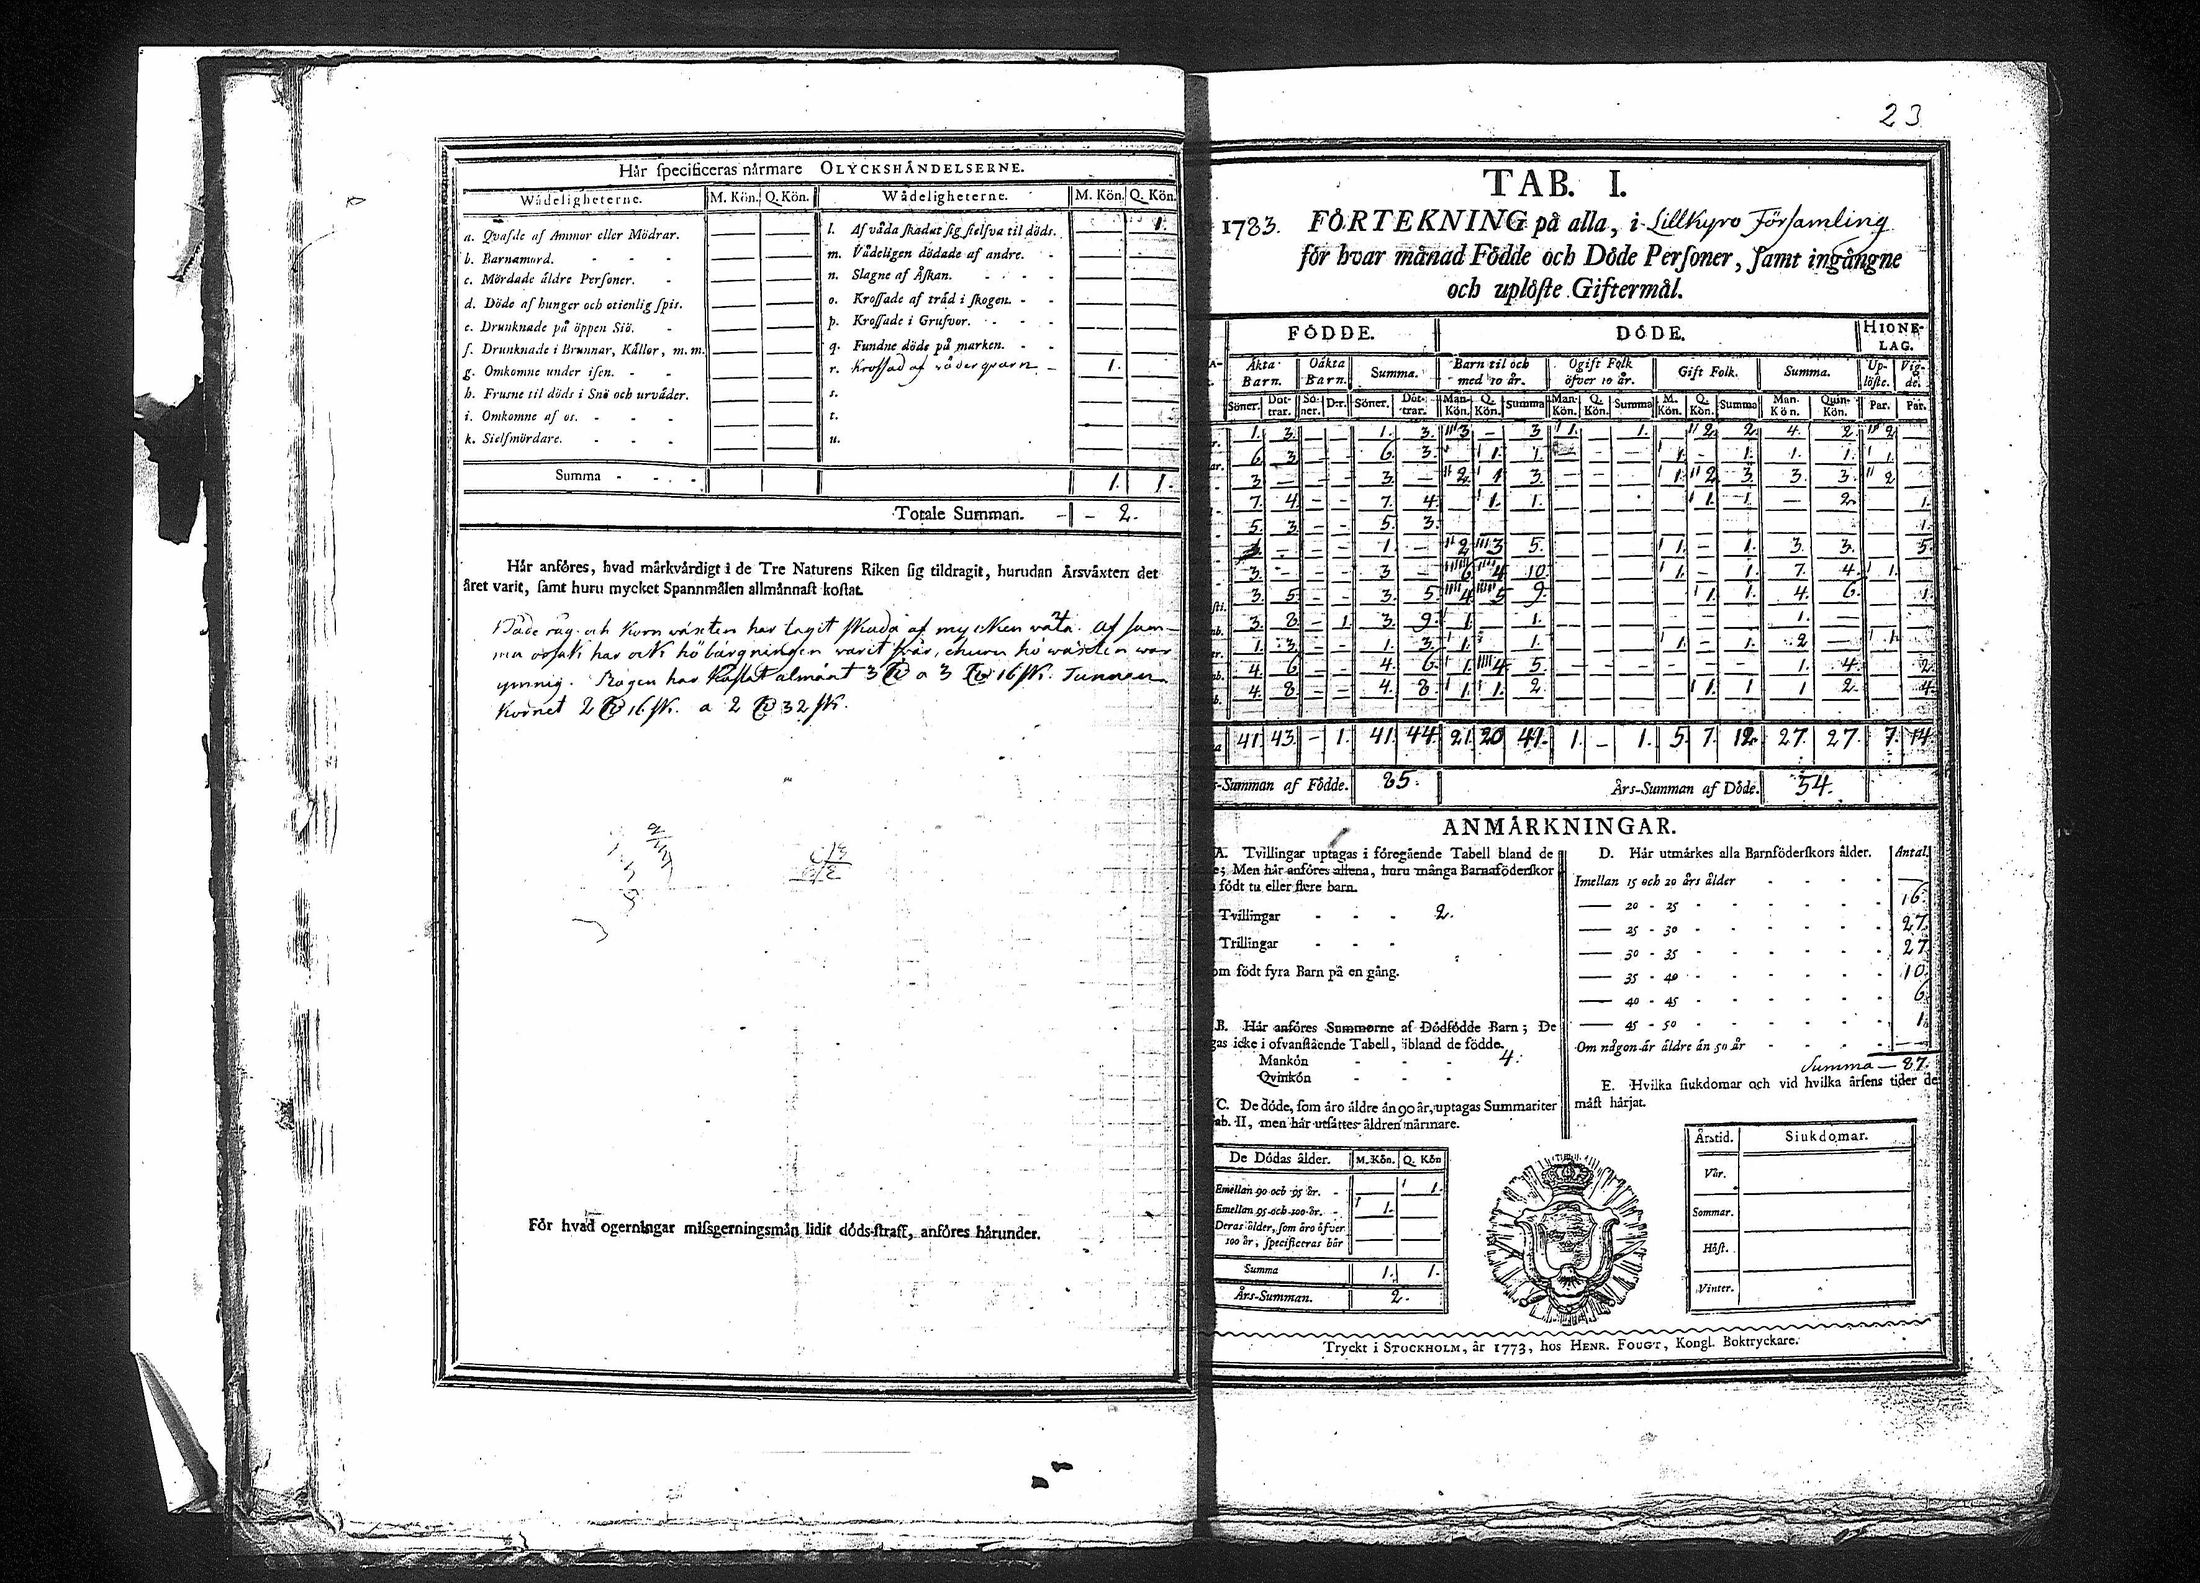 Hår specificeras nårmare OLYCKSHÅNDELSERNE.
Wådeligheterne. M. Kön. Q. Kön. Wådeligheterne. M. Kön. Q. Kön.
a. Qvafde af Ammor eller Mödrar. — — l. Af våda skadat sig sielfva til döds. — 1.
b. Barnamord. - - - — — m. Vådeligen dödade af andre. - — —
c. Mördade åldre Personer. - — — n. Slagne af Åskan. - - - — —
d. Döde af hunger och otienlig spis. — — o. Krossade af tråd i skogen. - - — —
e. Drunknade på öppen Siö. - — — p. Krossade i Grufvor. - - - — —
f. Drunknade i Brunnar, Kållor, m. m. — — q. Fundne döde på marken. - - — —
g. Omkomne under isen. - - — — r. Krossad af våderqvarn — 1. —
h. Frusne til döds i Snö och urvåder. — — s.
i. Omkomne af os. - - - — — t.
k. Sielfmördare. - - - — — u.
Summa - - - - 1. 1.
Totale Summan. - - 2.
Hår anföres, hvad mårkvårdigt i de Tre Naturens Riken sig tildragit, hurudan Årsvåxten det
året varit, samt huru mycket Spannmålen allmånnast kostat.
Både råg och Korn wäxten har tagit skada af mycken wäta. Af sam-
ma orsak har ock höbärgningen varit svår, ehuru hö wäxten war
ymnig. Rågen har kostat almänt 3 a 3 16 sk. Tunnan
Kornet 2 16 sk. a 2 32 sk.
För hvad ogerningar missgerningsmån lidit döds-straff, anföres hårunder.
23
TAB. I.
1783. FÖRTEKNING på alla, i Lillkyro Församling
för hvar månad Födde och Döde Personer, samt ingångne
och uplöste Giftermål.
FÖDDE. DÖDE. HIONE-
LAG.
Åkta Barn. Oåkta Barn. Summa. Barn til och med 10 år. Ogift Folk öfver 10 år. Gift Folk. Summa. Up-löste. Vig-de.
Söner. Döt-trar. Sö-ner. D:r. Söner. Döt-trar. Man-Kön. Q. Kön. Summa Man-Kön. Q. Kön. Summa M. Kön. Q. Kön. Summa Man-Kön. Quin-Kön. Par. Par.
1. 3. — — 1. 3. 3 — 3 1. — 1. — 2. 2. 4. 2. 2
6. 3 — — 6. 3. — 1. 1. — — — 1. — 1. 1. 1. 1.
3. — — — 3. — 2. 1 3. — — — 1. 2. 3. 3. 3. 2
7. 4. — — 7. 4. — 1. 1. — — — — 1. 1. — 2. — 1.
5. 3. — — 5. 3. — — — — — — — — — — — — 1.
1. — — — 1. — 2. 3 5. — — — 1. — 1. 3. 3. — 5.
3. — — — 3 — 6. 4 10. — — — 1. — 1. 7. 4. 1.
3. 5. — — 3. 5. 4 5 9. — — — — 1. 1. 4. 6. — 1.
3. 8. — 1. 3. 9. 1. — 1. — — — — — — 1. —
1. 3. — — 1. 3. 1. — 1. — — — 1. — 1. 2 — 1.
4. 6. — — 4. 6. 1. 4 5. — — — — — — 1. 4. — 2.
4. 8. — — 4. 8. 1. 1. 2. — — — — 1. 1 1 2. — 4.
41. 43. — 1. 41. 44. 21. 20 41. 1. — 1. 5. 7. 12. 27. 27. 7. 14
-Summan af Födde. 85. Års-Summan af Döde. 54.
ANMÅRKNINGAR.
A. Tvillingar uptagas i föregående Tabell bland de
; Men hår anföres allena, huru många Barnaföderskor
födt tu eller flere barn.
Tvillingar - - - 2.
Trillingar - - -
om födt fyra Barn på en gång.
B. Hår anföres Summorne af Dödfödde Barn; De
gas icke i ofvanstående Tabell, ibland de födde.
Mankön - - - 4.
Qvinkön - - -
C. De döde, som åro åldre ån 90 år, uptagas Summariter
Tab. II, men hår utsåttes åldren nårmare.
De Dödas ålder. M. Kön. Q. Kön
Emellan 90 och 95 år. - — 1.
Emellan 95 och 100 år. - 1. —
Deras ålder, som åro öfver — —
100 år, specificeras hår — —
Summa 1. 1.
Års-Summan. 2.
D. Hår utmårkes alla Barnföderskors ålder. Antal.
Imellan 15 och 20 års ålder - - - - —
— 20 - 25 - - - - - - 16.
— 25 - 30 - - - - - - 27.
— 30 - 35 - - - - - - 27.
— 35 - 40 - - - - - - 10.
— 40 - 45 - - - - - - 6.
— 45 - 50 - - - - - - 1.
Om någon är åldre ån 50 år - - - - —
Summa — 87.
E. Hvilka siukdomar och vid hvilka årsens tider de
måst hårjat.
Årstid. Siukdomar.
Vår.
Sommar.
Höst.
Vinter.
Tryckt i STOCKHOLM, år 1773, hos HENR. FOUGT, Kongl. Boktryckare.